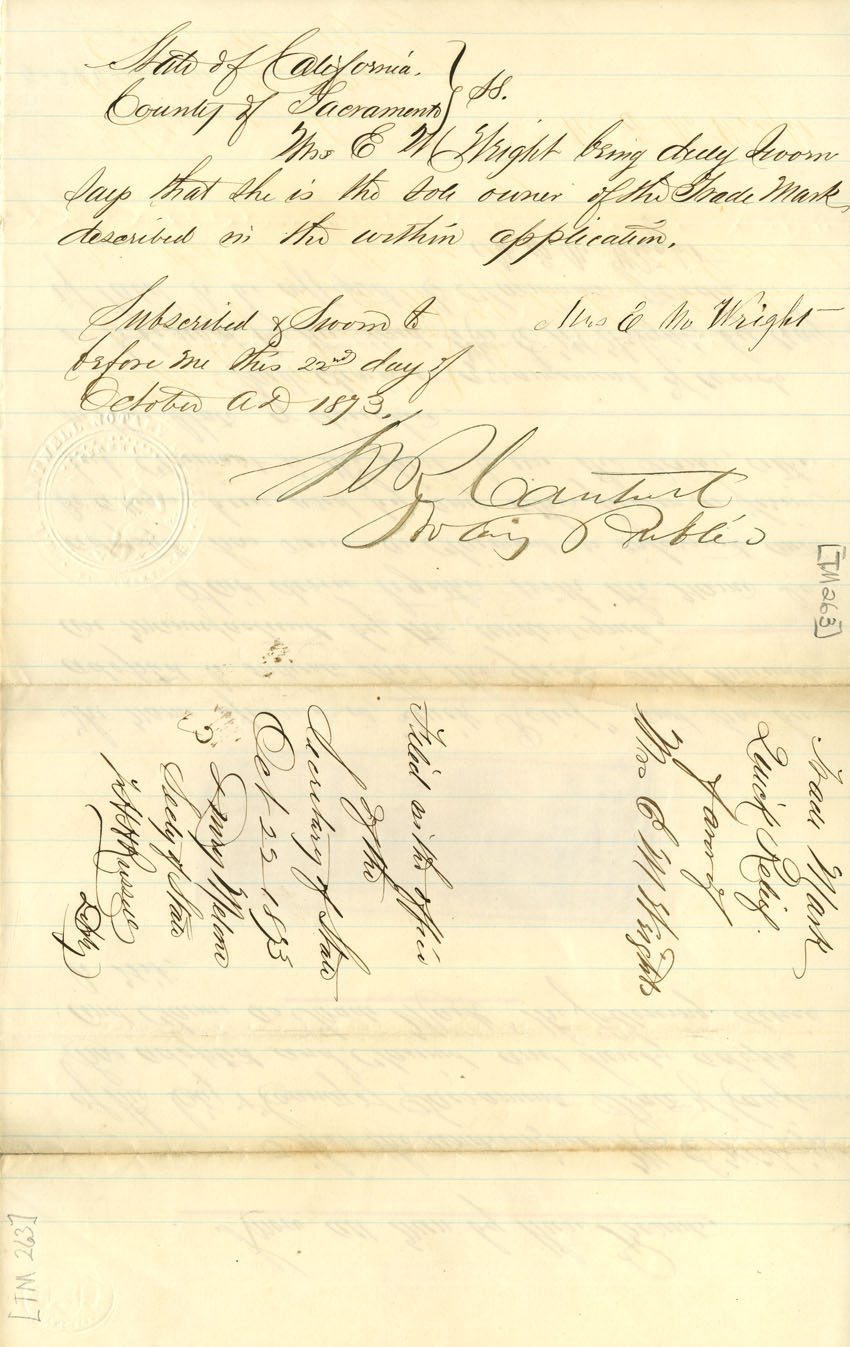 State of California.
County of Sacramento } ss.
Mrs E M Wright being duly sworn
says that she is the sole owner of the Trade Mark
described in the within application.
Subscribed & Sworn to
before me this 22nd day of
October AD 1873.
Mrs E M Wright
Notary Public
[TM 263]
Trade Mark
Quick Relief.
favor of
Mrs E M Wright
Filed in the office
of the
Secretary of State
Oct 22 1873
Drury Melone
Secty of State
Depty
[TM 263]